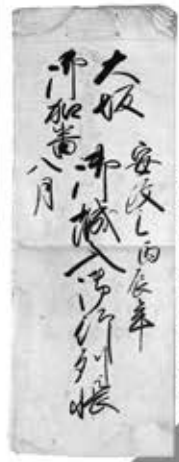 安政乙丙辰年
大坂 御城入御行列帳
御加番 八月